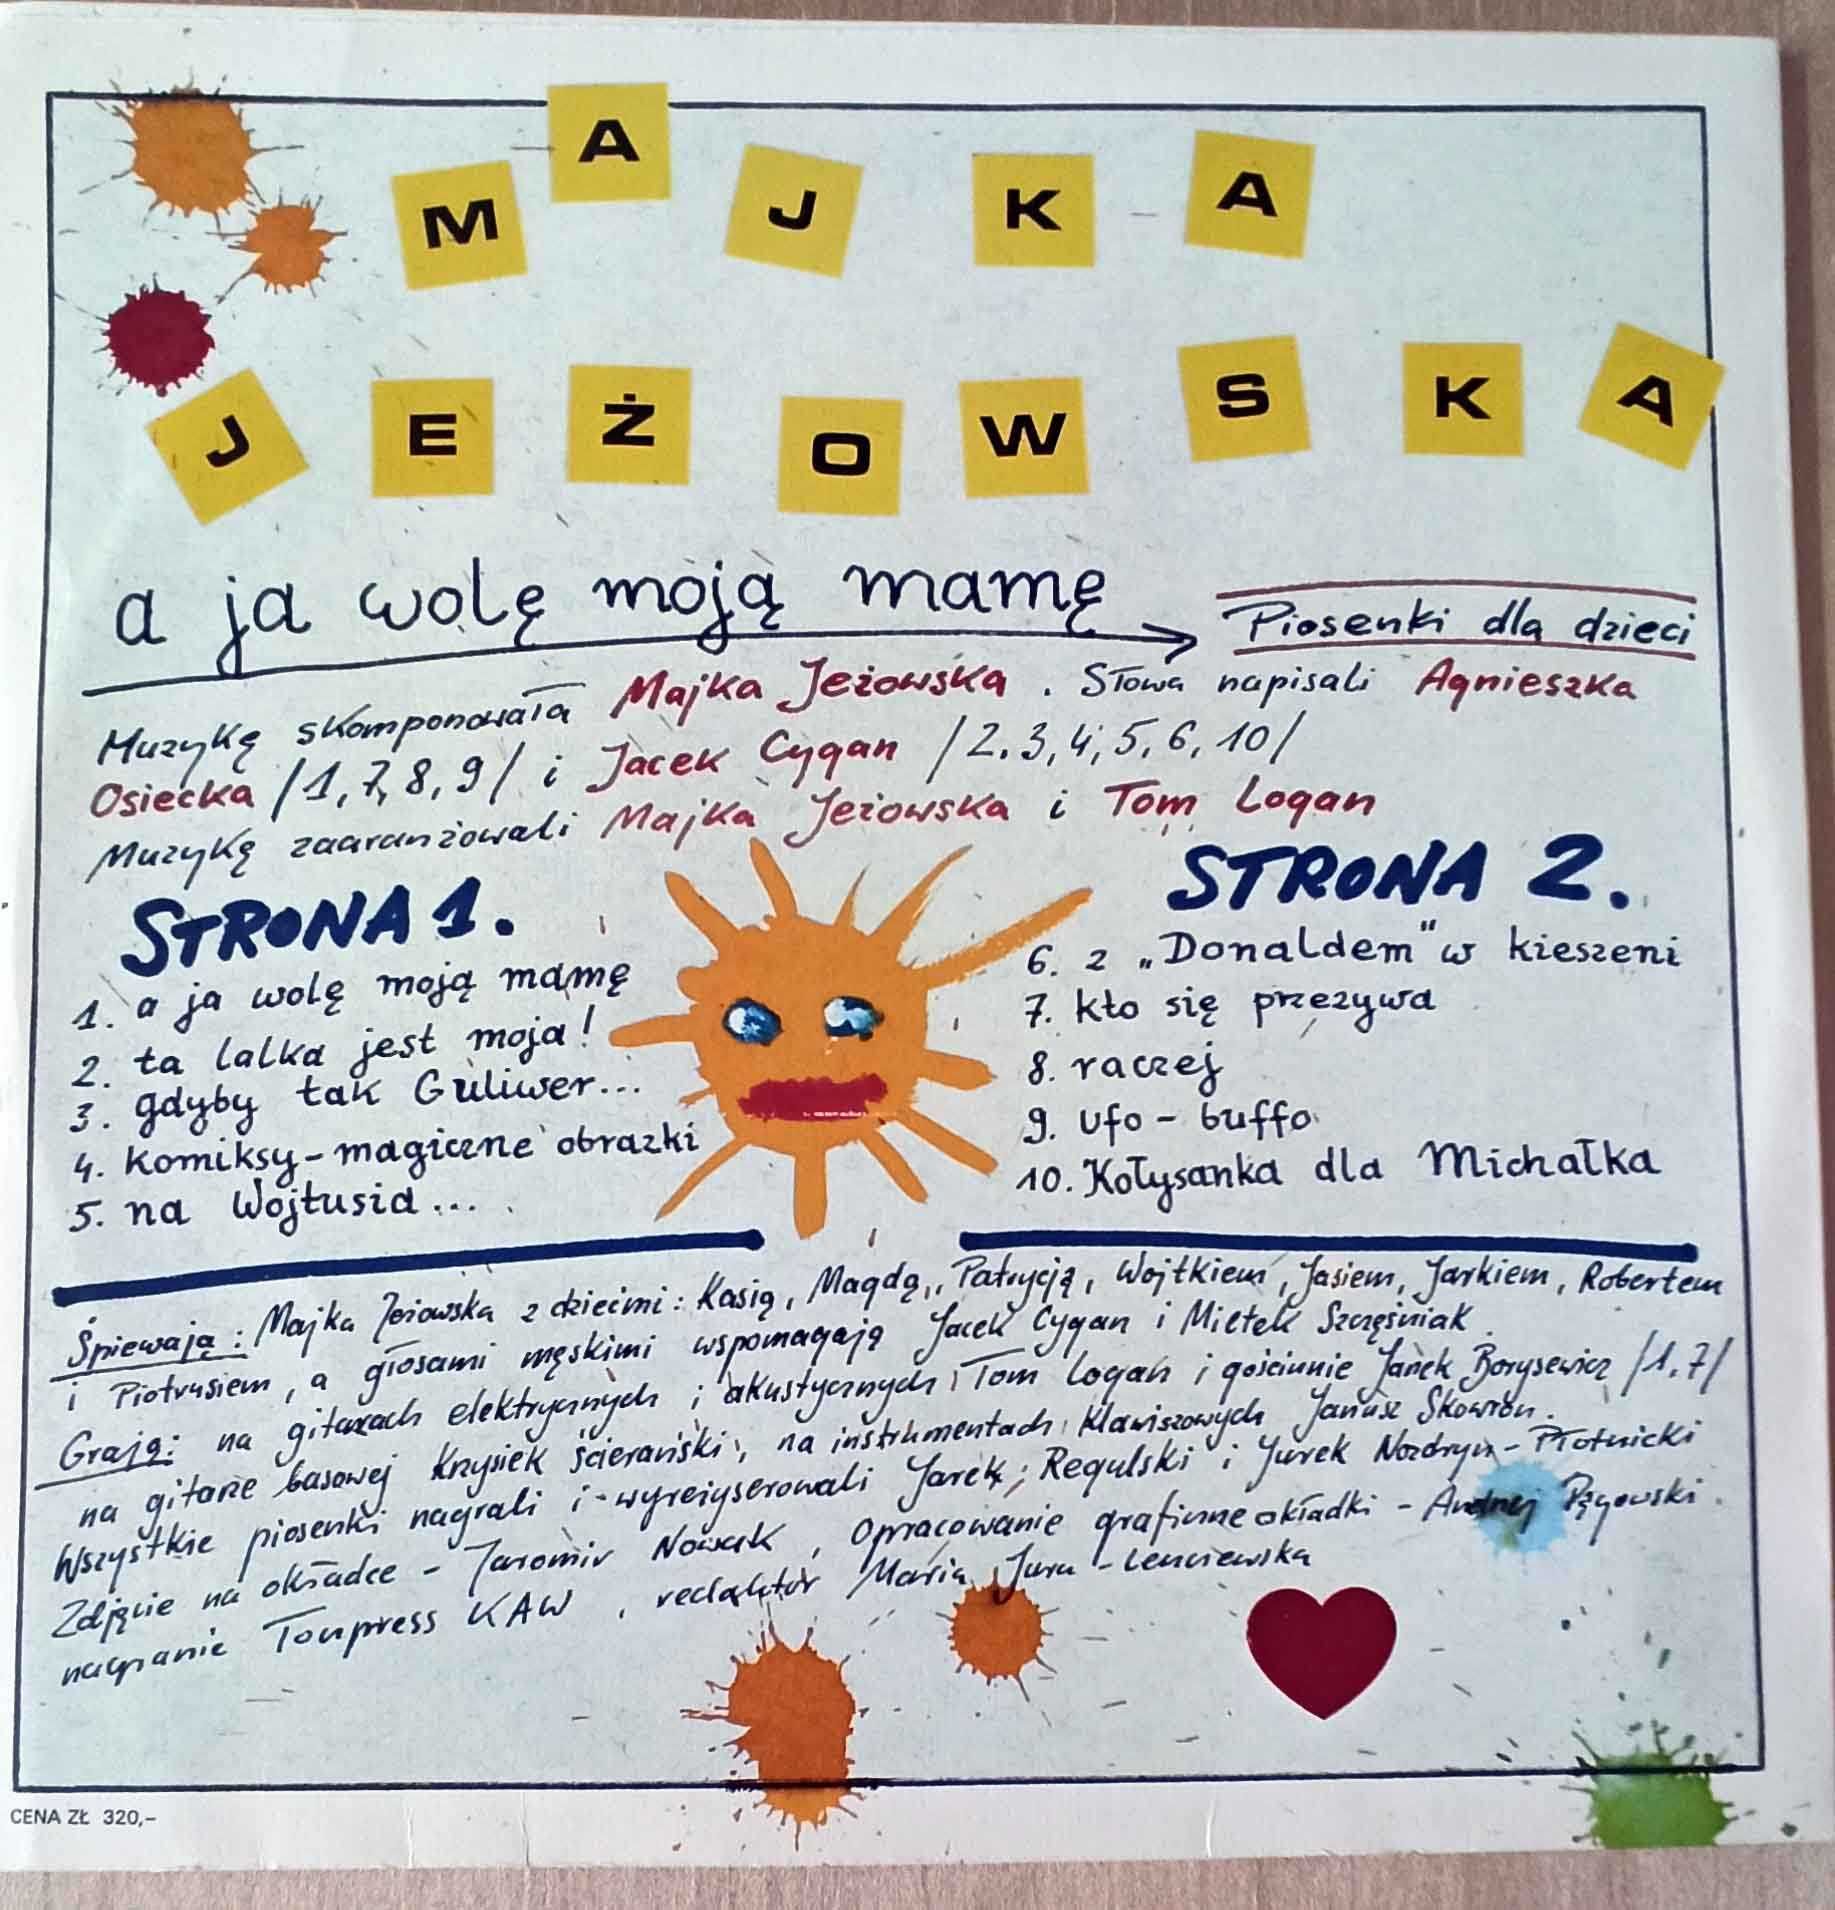 MAJKA
JEŻOWSKA
a ja wolę moją mamę
Piosenki dla dzieci
Muzykę skomponowała Majka Jeżowska. Słowa napisali Agnieszka
Osiecka /1, 7, 8, 9/ i Jacek Cygan /2, 3, 4, 5, 6, 10/
Muzykę zaaranżowali Majka Jeżowska i Tom Logan
STRONA 1.
1. a ja wolę moją mamę
2. ta lalka jest moja!
3. gdyby tak Guliwer...
4. Komiksy - magiczne obrazki
5. na Wojtusia...
STRONA 2.
6. z „Donaldem" w kieszeni
7. kto się przezywa
8. raczej
9. ufo - buffo
10. Kołysanka dla Michałka
Śpiewają: Majka Jeżowska z dziećmi: Kasią, Magdą, Patrycją, Wojtkiem, Jasiem, Jarkiem, Robertem
i Piotrusiem, a głosami męskimi wspomagają Jacek Cygan i Mietek Szcześniak.
Grają: na gitarach elektrycznych i akustycznych Tom Logan i gościnnie Janek Borysewicz /1, 7/
na gitarze basowej Krzysiek Ścierański, na instrumentach klawiszowych Janusz Skowron.
Wszystkie piosenki nagrali i wyreżyserowali Jarek Regulski i Jurek Nozdryn-Płotnicki
Zdjęcie na okładce - Jaromir Nowak, Opracowanie graficzne okładki - Andrzej
nagranie Tonpress KAW, redaktor Maria Jura-
CENA ZŁ 320,-